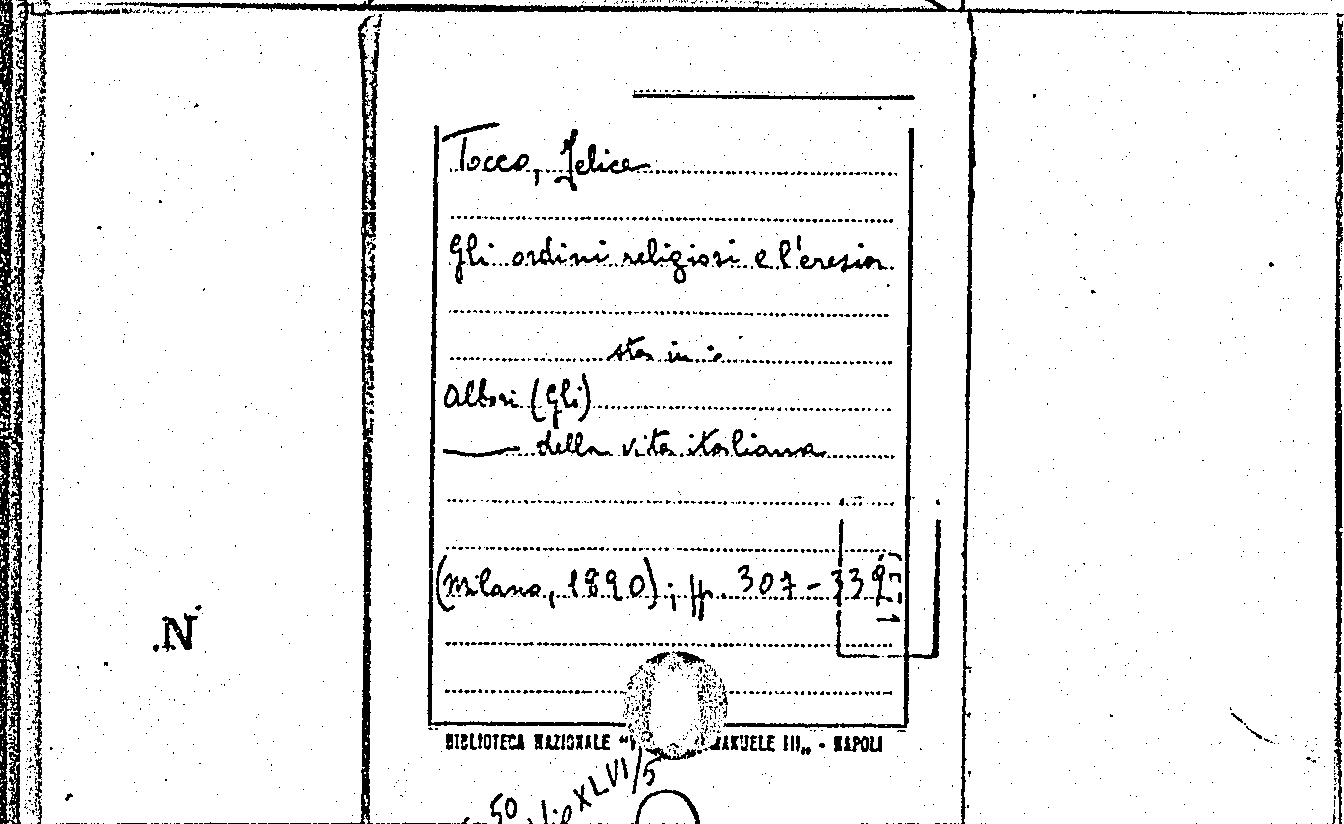 Tocco, Felice
Gli ordini religiosi e l'eresia
sta in :
Albori (Gli)
—— della vita italiana
(Milano, 1890); pp. 307-
.N
BIBLIOTECA NAZIONALE " EMANUELE III„ - NAPOLI
50
XLVI/5